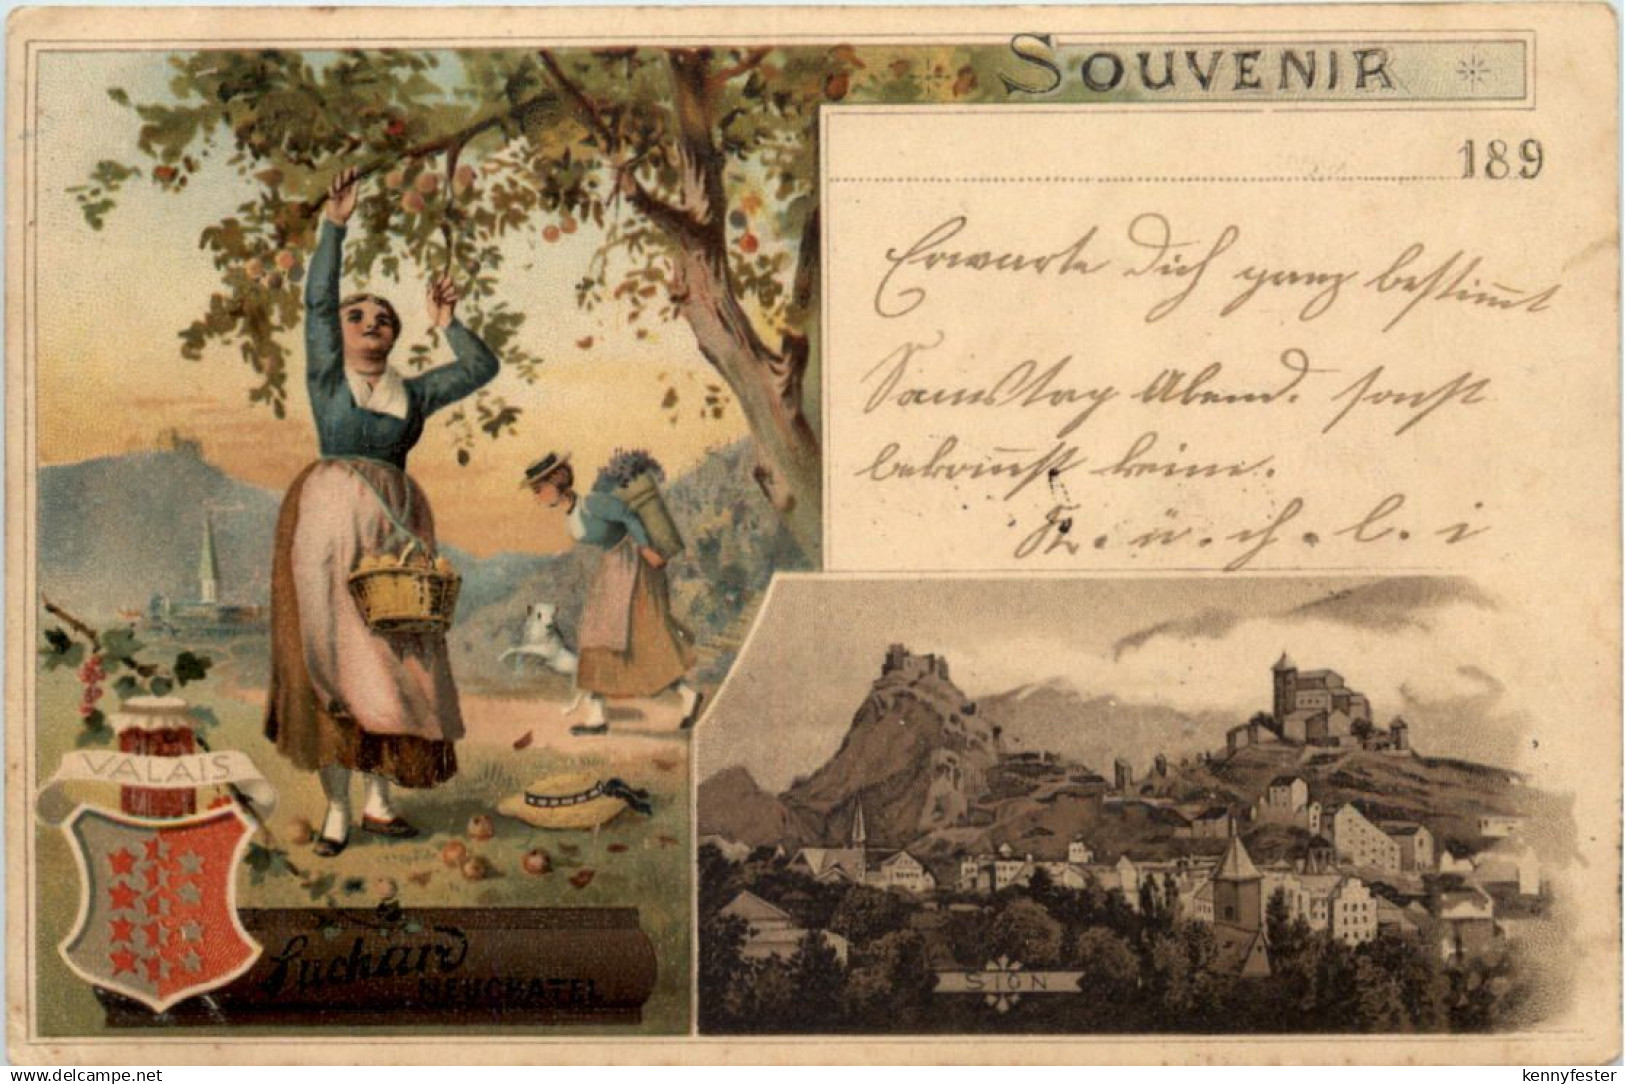 SOUVENIR
189
Erwarte Dich ganz bestimmt
Samstag Abend. sonst
bekommst keine.
K. ü. ch. l. i
VALAIS
Suchard
NEUCHATEL
SION
delcampe.net
kennyfester